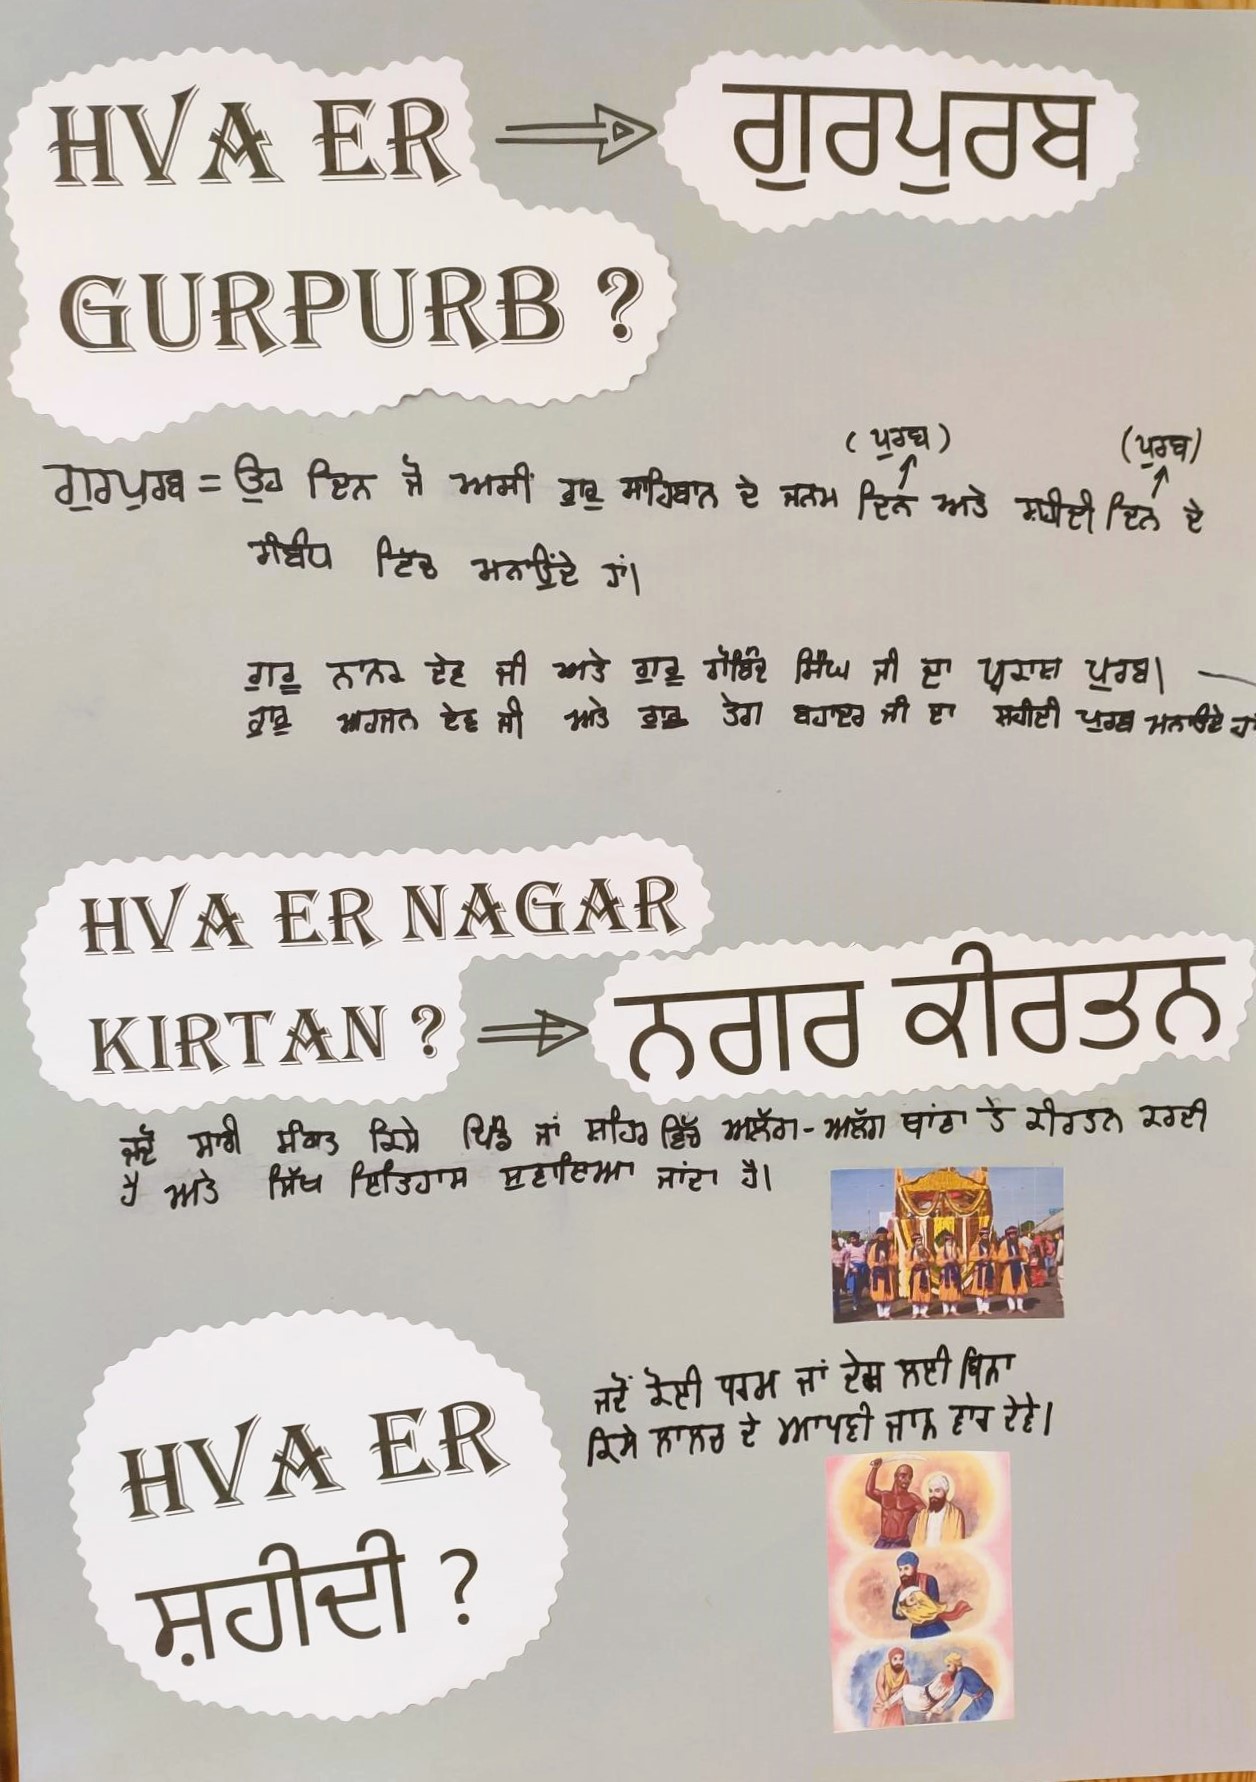 HVA ER
GURPURB ?
ਗੁਰਪੁਰਬ
(ਪੁਰਬ) (ਪੁਰਬ)
ਗੁਰਪੁਰਬ = ਉਹ ਦਿਨ ਜੋ ਅਸੀਂ ਗੁਰੂ ਸਾਹਿਬਾਨ ਦੇ ਜਨਮ ਦਿਨ ਅਤੇ ਸ਼ਹੀਦੀ ਦਿਨ ਦੇ
ਸੰਬੰਧ ਵਿੱਚ ਮਨਾਉਂਦੇ ਹਾਂ।
ਗੁਰੂ ਨਾਨਕ ਦੇਵ ਜੀ ਅਤੇ ਗੁਰੂ ਗੋਬਿੰਦ ਸਿੰਘ ਜੀ ਦਾ ਪ੍ਰਕਾਸ਼ ਪੁਰਬ।
ਗੁਰੂ ਅਰਜਨ ਦੇਵ ਜੀ ਅਤੇ ਗੁਰੂ ਤੇਗ ਬਹਾਦਰ ਜੀ ਦਾ ਸ਼ਹੀਦੀ ਪੁਰਬ ਮਨਾਉਂਦੇ
HVA ER NAGAR
KIRTAN ?
ਨਗਰ ਕੀਰਤਨ
ਜਦੋਂ ਸਾਰੀ ਸੰਗਤ ਕਿਸੇ ਪਿੰਡ ਜਾਂ ਸ਼ਹਿਰ ਵਿੱਚ ਅਲੱਗ-ਅਲੱਗ ਥਾਂਵਾ ਤੇ ਕੀਰਤਨ ਕਰਦੀ
ਹੈ ਅਤੇ ਸਿੱਖ ਇਤਿਹਾਸ ਸੁਣਾਇਆ ਜਾਂਦਾ ਹੈ।
ਜਦੋਂ ਕੋਈ ਧਰਮ ਜਾਂ ਦੇਸ਼ ਲਈ ਬਿਨਾ
ਕਿਸੇ ਲਾਲਚ ਦੇ ਆਪਣੀ ਜਾਨ ਵਾਰ ਦੇਵੇ।
HVA ER
ਸ਼ਹੀਦੀ ?